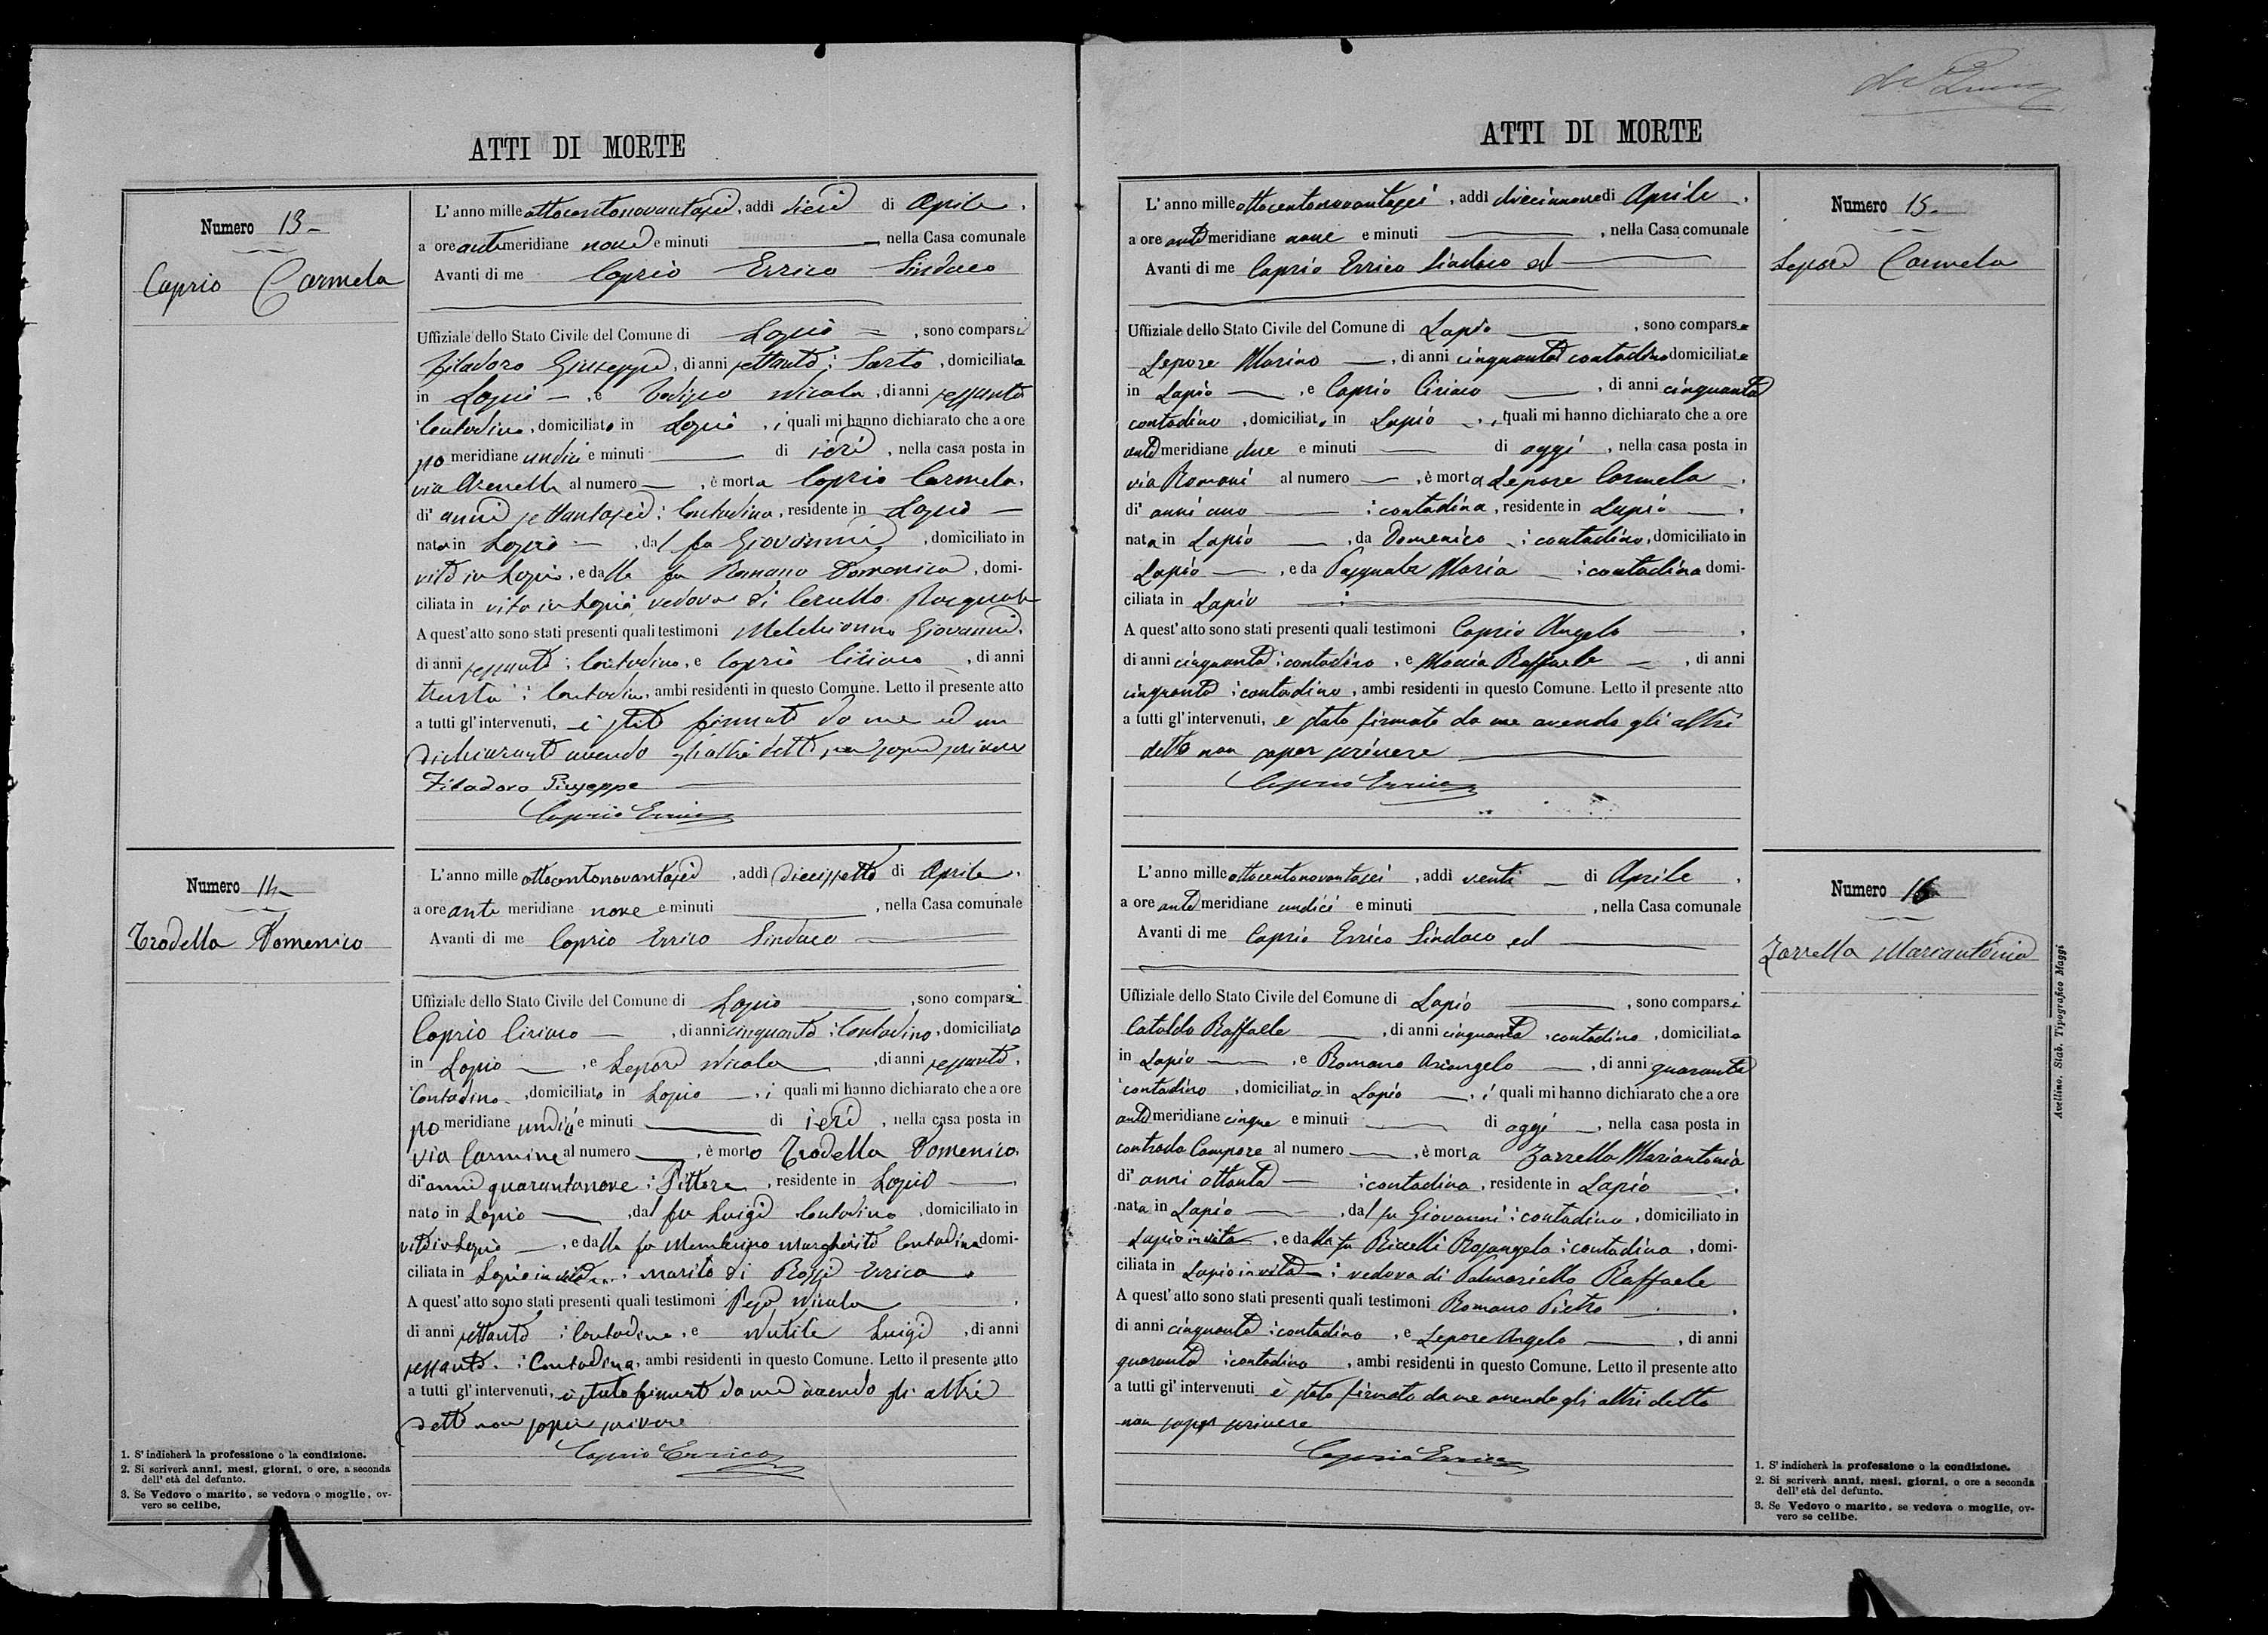 ATTI DI MORTE
Numero 13
Caprio Carmela
L'anno milleottocentonovantasei, addì dieci di Aprile,
a ore antimeridiane nove e minuti, nella Casa comunale
Avanti di me Caprio Errico Sindaco
Uffiziale dello Stato Civile del Comune di Lapio, sono comparsi
Filadoro Giuseppe, di anni settanta; Sarto, domiciliato
in Lapio, e Nicola, di anni sessanta
Contadino, domiciliato in Lapio, i quali mi hanno dichiarato che a ore
po meridiane undici e minuti di ieri, nella casa posta in
via Arenella al numero, è morta Caprio Carmela,
di anni settantasei; Contadina, residente in Lapio
nata in Lapio, dal fu Giovanni, domiciliato in
vita in Lapio, e dalla fu Romano Domenica, domi-
ciliata in vita in Lapio, vedova di Cerullo Pasquale
A quest'atto sono stati presenti quali testimoni Melchionno Giovanni,
di anni sessanta; Contadino, e Caprio Ciriaco, di anni
trenta; Contadino, ambi residenti in questo Comune. Letto il presente atto
a tutti gl'intervenuti, è stato firmato da me ed un
dichiarante avendo gli altri detto non saper scrivere
Filadoro Giuseppe
Caprio Errico
Numero 14
Trodella Domenico
L'anno milleottocentonovantasei, addì diecissette di Aprile,
a ore ante meridiane nove e minuti, nella Casa comunale
Avanti di me Caprio Errico Sindaco
Uffiziale dello Stato Civile del Comune di Lapio, sono comparsi
Caprio Ciriaco, di anni cinquanta; Contadino, domiciliato
in Lapio, e Lepore Nicola, di anni sessanta,
Contadino, domiciliato in Lapio, i quali mi hanno dichiarato che a ore
po meridiane undici e minuti di ieri, nella casa posta in
via Carmine al numero, è morto Trodella Domenico,
di anni quarantanove; Pittore, residente in Lapio,
nato in Lapio, dal fu Luigi Contadino, domiciliato in
vita in Lapio, e dalla fu Margherita Contadina domi-
ciliata in Lapio in vita; marito di Rossi Errica
A quest'atto sono stati presenti quali testimoni Nicola,
di anni settanta; Contadino, e Nutile Luigi, di anni
sessanta; Contadino, ambi residenti in questo Comune. Letto il presente atto
a tutti gl'intervenuti, è stato firmato da me avendo gli altri
detto non saper scrivere
Caprio Errico
1. S'indicherà la professione o la condizione.
2. Si scriverà anni, mesi, giorni, o ore, a seconda
dell'età del defunto.
3. Se Vedovo o marito, se vedova o moglie, ov-
vero se celibe.
ATTI DI MORTE
Numero 15
Lepore Carmela
L'anno milleottocentonovantasei, addì diciannove di Aprile,
a ore ante meridiane nove e minuti, nella Casa comunale
Avanti di me Caprio Errico Sindaco ed
Uffiziale dello Stato Civile del Comune di Lapio, sono comparse
Lepore Marino, di anni cinquanta contadino domiciliato
in Lapio, e Caprio Ciriaco, di anni cinquanta
contadino, domiciliato in Lapio, i quali mi hanno dichiarato che a ore
ante meridiane due e minuti di oggi, nella casa posta in
via Romani al numero, è morta Lepore Carmela,
di anni uno; contadina, residente in Lapio,
nata in Lapio, da Domenico; contadino, domiciliato in
Lapio, e da Pasquale Maria; contadina domi-
ciliata in Lapio
A quest'atto sono stati presenti quali testimoni Caprio Angelo,
di anni cinquanta; contadino, e Raffaele, di anni
cinquanta; contadino, ambi residenti in questo Comune. Letto il presente atto
a tutti gl'intervenuti, è stato firmato da me avendo gli altri
detto non saper scrivere
Caprio Errico
Numero 16
Zarrella Mariantonia
L'anno milleottocentonovantasei, addì venti di Aprile,
a ore ante meridiane undici e minuti, nella Casa comunale
Avanti di me Caprio Errico Sindaco ed
Uffiziale dello Stato Civile del Comune di Lapio, sono comparsi
Cataldo Raffaele, di anni cinquanta, contadino, domiciliato
in Lapio, e Romano Arcangelo, di anni quaranta
contadino, domiciliato in Lapio, i quali mi hanno dichiarato che a ore
ante meridiane cinque e minuti di oggi, nella casa posta in
contrada Campore al numero, è morta Zarrella Mariantonia
di anni ottanta; contadina, residente in Lapio,
nata in Lapio, dal fu Giovanni; contadino, domiciliato in
Lapio in vita, e dalla fu Riccelli Rosangela; contadina, domi-
ciliata in Lapio in vita; vedova di Palmariello Raffaele
A quest'atto sono stati presenti quali testimoni Romano Pietro,
di anni cinquanta; contadino, e Lepore Angelo, di anni
quaranta; contadino, ambi residenti in questo Comune. Letto il presente atto
a tutti gl'intervenuti è stato firmato da me avendo gli altri detto
non saper scrivere
Caprio Errico
1. S'indicherà la professione o la condizione.
2. Si scriverà anni, mesi, giorni, o ore a seconda
dell'età del defunto.
3. Se Vedovo o marito, se vedova o moglie, ov-
vero se celibe.
Avellino. Stab. Tipografico Maggi